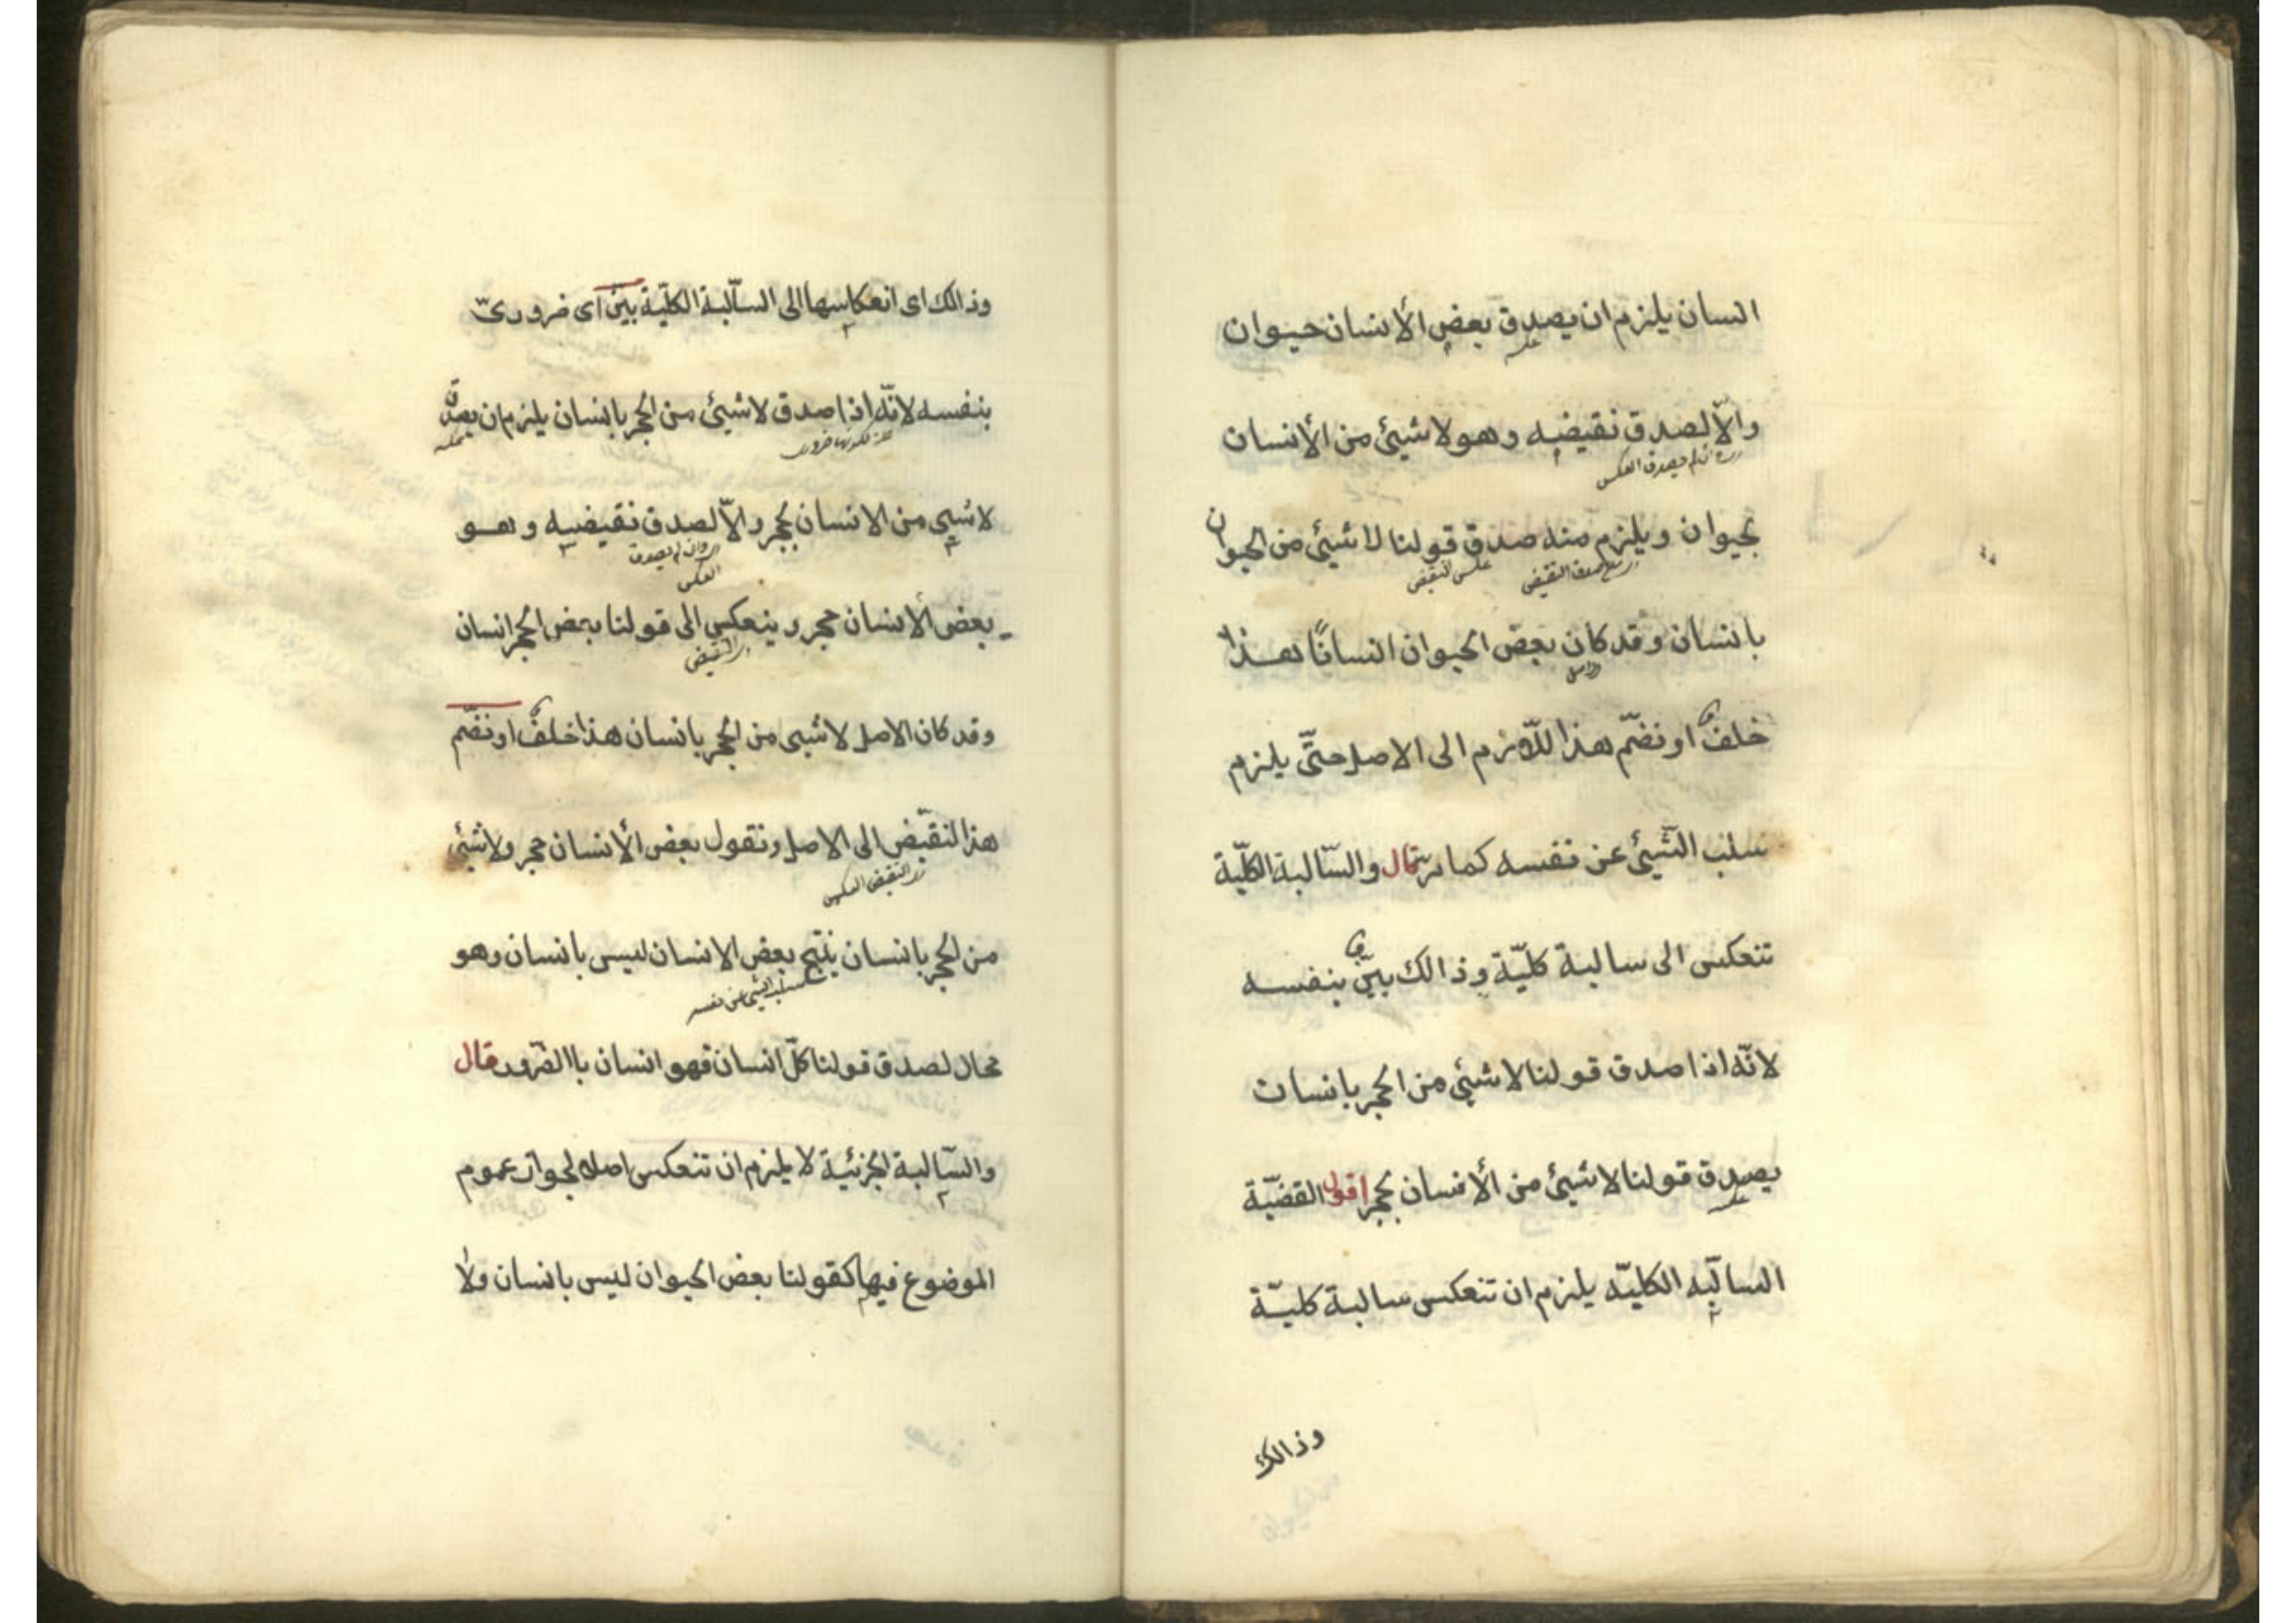 انسان يلزم ان يصدق بعض الأنسان حيوان
عكسه
والّا لصدق نقيضه وهو لا شيئ من الأنسان
ان لم يصدق العكس
بحيوان ويلزم منه صدق قولنا لا شيئ من الحيوان
صدق النقيض
عكس النقيض
بانسان وقد كان بعض الحيوان انسانًا هذا
الاصل
خلفٌ او نضّم هذا للّازم الى الاصل حتّى يلزم
سلب الشّيئ عن نفسه كما مرّ قال والسّالبة الكلّية
تنعكس الى سالبة كلّيّة وذالك بيّن بنفسه
لانّه اذا صدق قولنا لا شيئ من الحجر بانسان
يصدق قولنا لا شيئ من الأنسان بحجر اقول القضيّة
عكسه
السالبه الكليّه يلزم ان تنعكس سالبة كليّة
وذالك
وذالك اى انعكاسها الى السّالبة الكلّيّة بيّن اى ضرورىّ
بنفسه لانّه اذا صدق لا شيئ من الحجر بانسان يلزم ان يصدق
عكسه
لا شيئ من الانسان بحجر والّا لصدق نقيضه وهو
وان لم يصدق
العكس
بعض الأنسان حجر وينعكس الى قولنا بعض الحجر انسان
النقيض
وقد كان الاصل لا شيئ من الحجر بانسان هذا خلفٌ او نضّم
هذا لنقّيض الى الاصل ونقول بعض الأنسان حجر ولا شيئ
النقيض العكس
من لحجر بانسان ينتج بعض الانسان ليس بانسان وهو
سلب الشيئ عن نفسه
محال لصدق قولنا كلّ انسان فهو انسان باالضّرورة قال
والسّالبة الجزئية لا يلزم ان تنعكس اصلا لجواز عموم
الموضوع فيها كقولنا بعض الحيوان ليس بانسان ولا